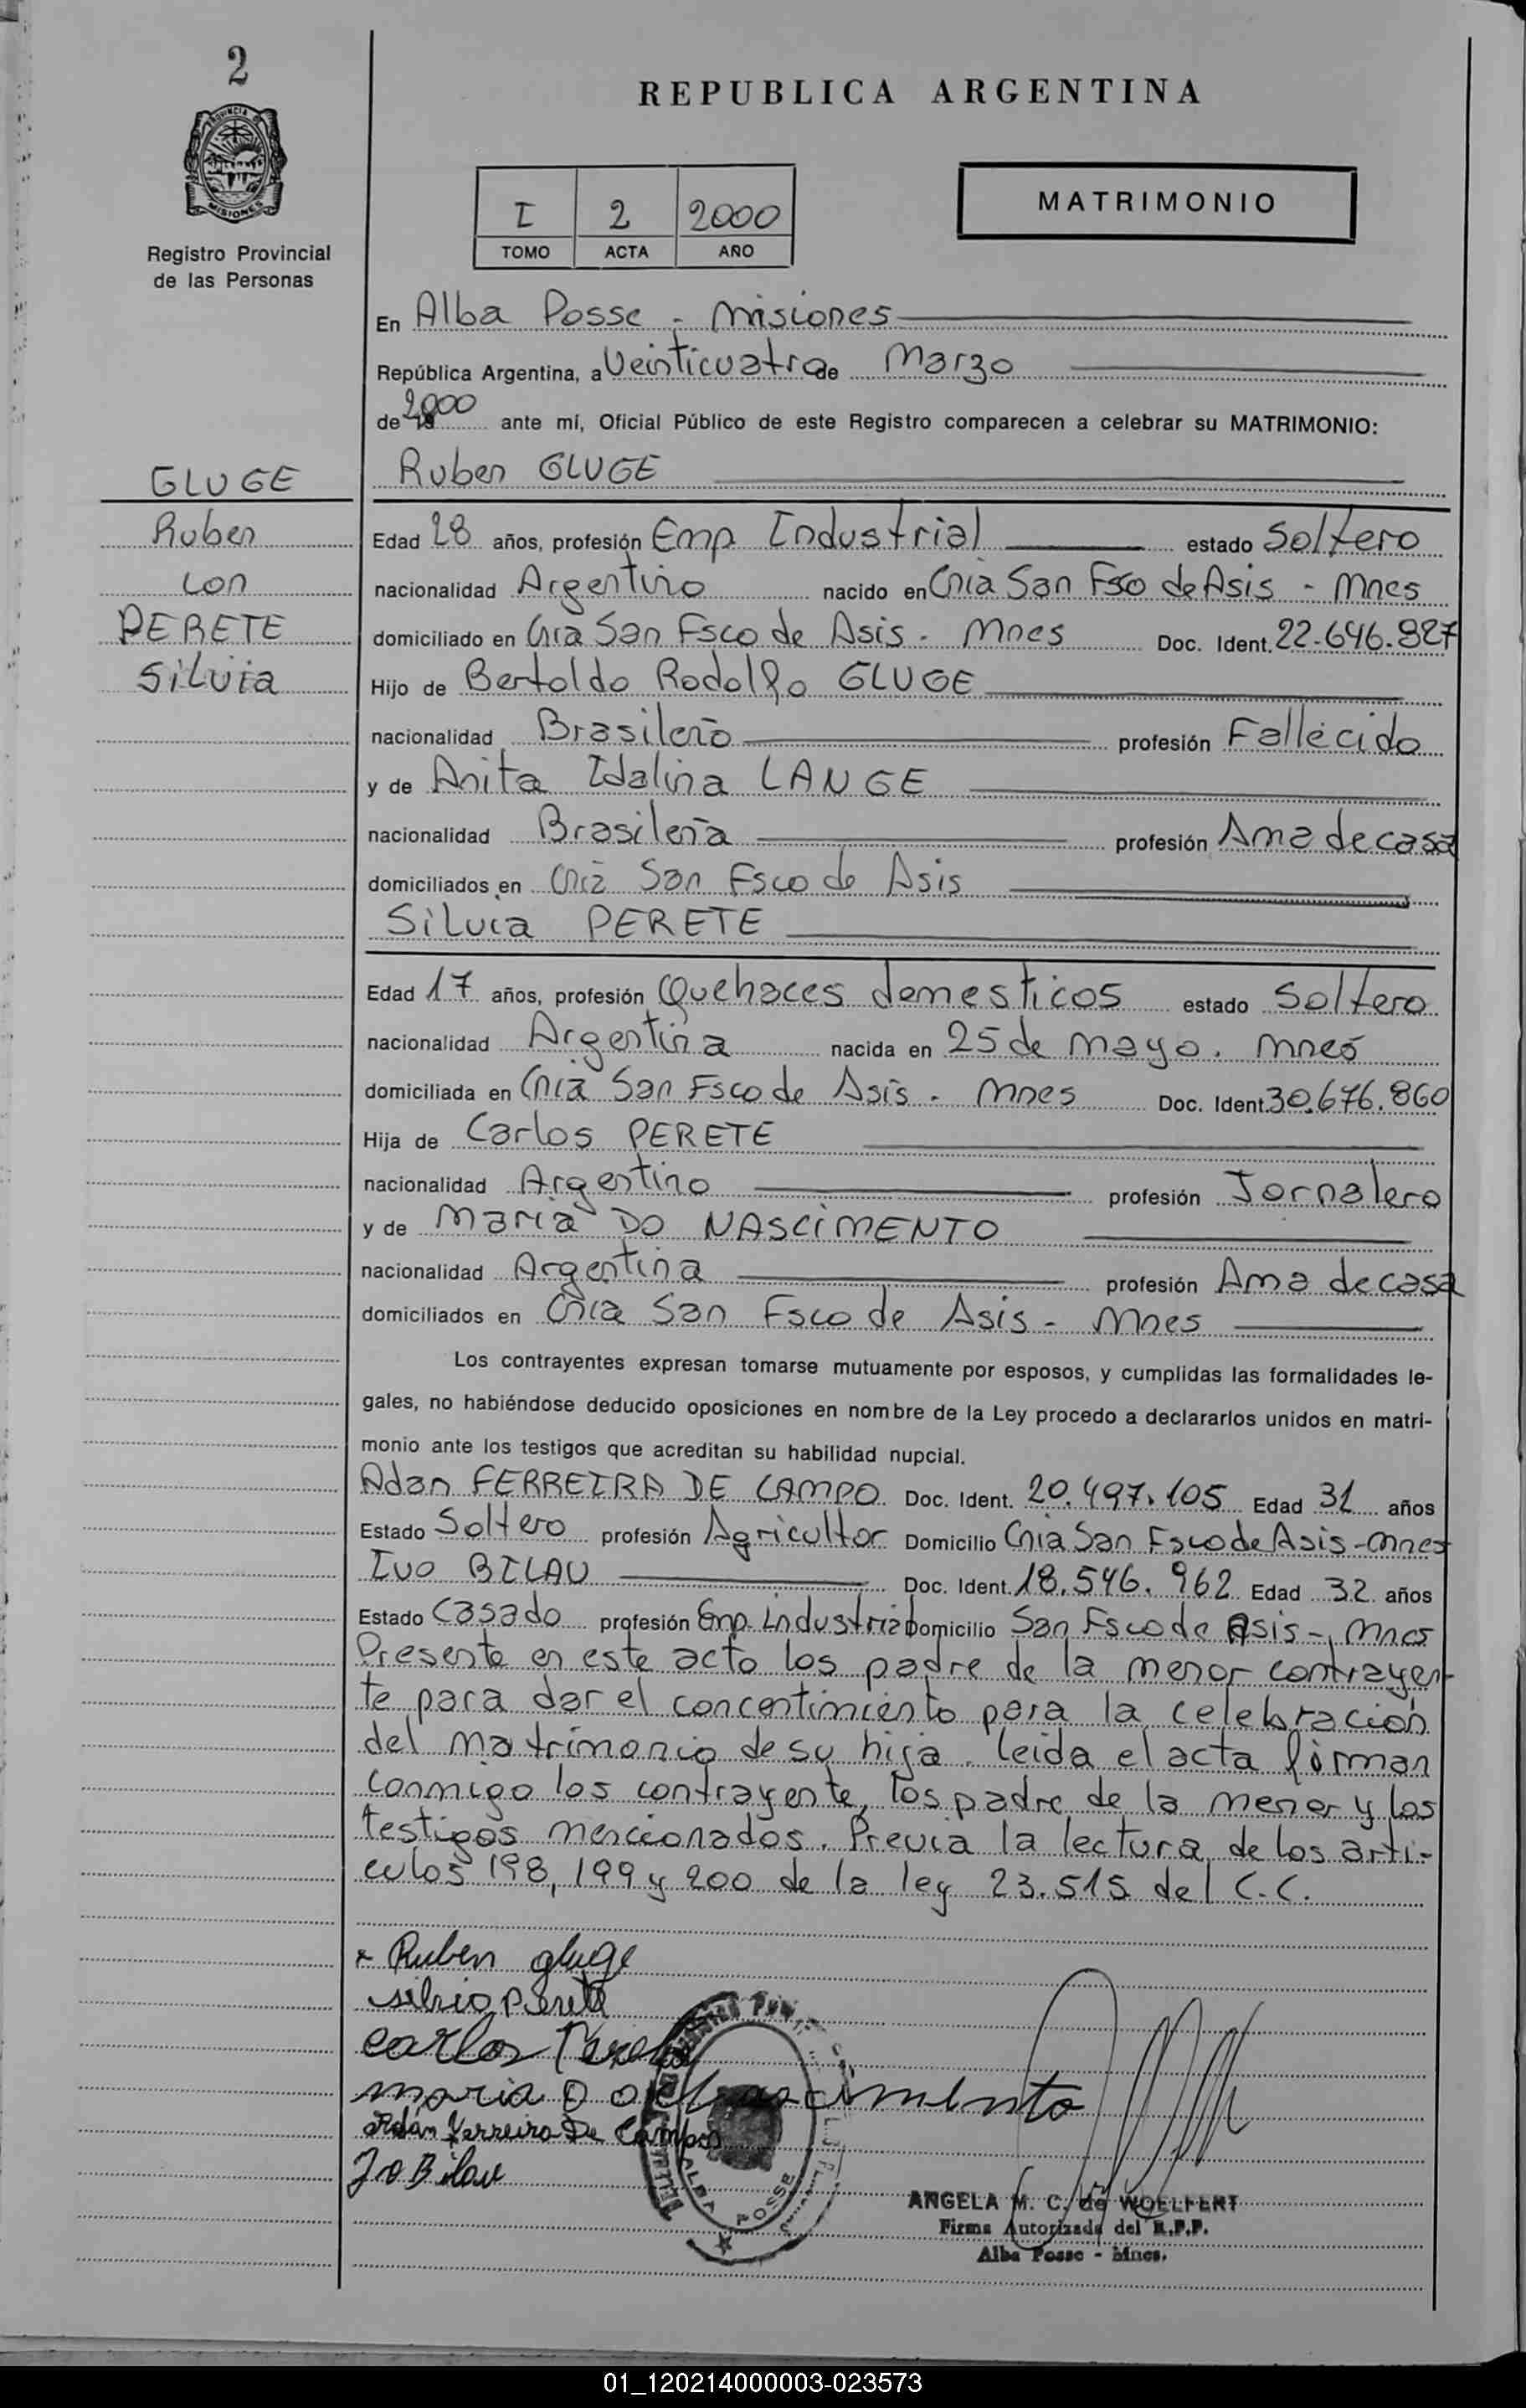 2
REPUBLICA ARGENTINA
PROVINCIA DE
MISIONES
Registro Provincial
de las Personas
I 2 2000
TOMO ACTA AÑO
MATRIMONIO
En Alba Posse - Misiones
República Argentina, a Veinticuatro de Marzo
de 2000 ante mí, Oficial Público de este Registro comparecen a celebrar su MATRIMONIO:
GLUGE
Ruben
con
PERETE
Silvia
Ruben GLUGE
Edad 28 años, profesión Emp Industrial estado Soltero
nacionalidad Argentino nacido en Cnia San Fsco de Asis - Mnes
domiciliado en Cnia San Fsco de Asis - Mnes Doc. Ident. 22.646.827
Hijo de Bertoldo Rodolfo GLUGE
nacionalidad Brasileño profesión Fallecido
y de Anita Idalina LANGE
nacionalidad Brasileña profesión Ama de casa
domiciliados en Cnia San Fsco de Asis
Silvia PERETE
Edad 17 años, profesión Quehaces domesticos estado Soltero
nacionalidad Argentina nacida en 25 de Mayo. Mnes
domiciliada en Cnia San Fsco de Asis - Mnes Doc. Ident. 30.676.860
Hija de Carlos PERETE
nacionalidad Argentino profesión Jornalero
y de Maria DO NASCIMENTO
nacionalidad Argentina profesión Ama de casa
domiciliados en Cnia San Fsco de Asis - Mnes
Los contrayentes expresan tomarse mutuamente por esposos, y cumplidas las formalidades le-
gales, no habiéndose deducido oposiciones en nombre de la Ley procedo a declararlos unidos en matri-
monio ante los testigos que acreditan su habilidad nupcial.
Adan FERREIRA DE CAMPO Doc. Ident. 20.497.105 Edad 31 años
Estado Soltero profesión Agricultor Domicilio Cnia San Fsco de Asis - Mnes
IVO BILAU Doc. Ident. 18.546.962 Edad 32 años
Estado Casado profesión Emp. Industrial Domicilio San Fsco de Asis - Mnes
Presente en este acto los padre de la menor contrayen-
te para dar el concentimiento para la celebracion
del matrimonio de su hija. leida el acta firman
conmigo los contrayente, los padre de la menor y los
testigos mencionados. Previa la lectura de los arti-
culos 198, 199 y 200 de la ley 23.515 del C.C.
Ruben gluge
silvia Perete
carlos Perete
maria Do nascimento
Adán Ferreira De Campo
Ivo Bilau
ALBA POSSE
ANGELA M. C. de WOELFERT
Firma Autorizada del R.P.P.
Alba Posse - Mnes.
01_120214000003-023573